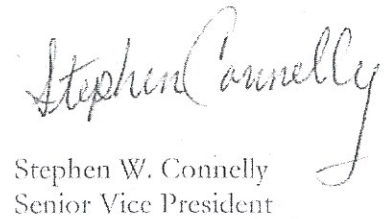 Stephen Connelly
Stephen W. Connelly
Senior Vice President